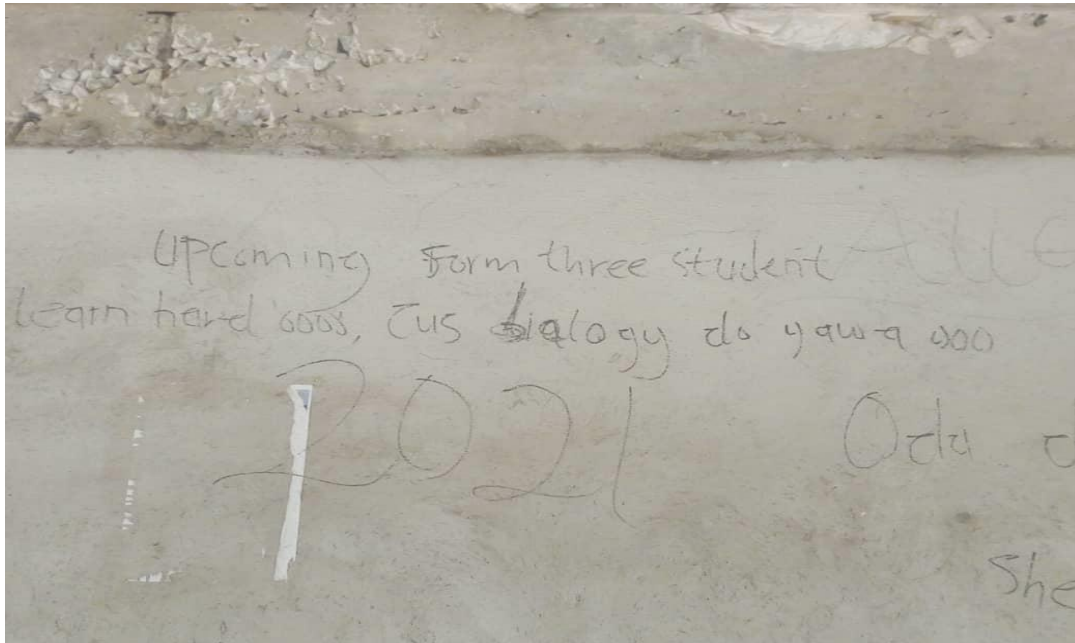 Upcoming Form three student
Learn hard oooo, Cus biology do yawa ooo
2021
Oda
She